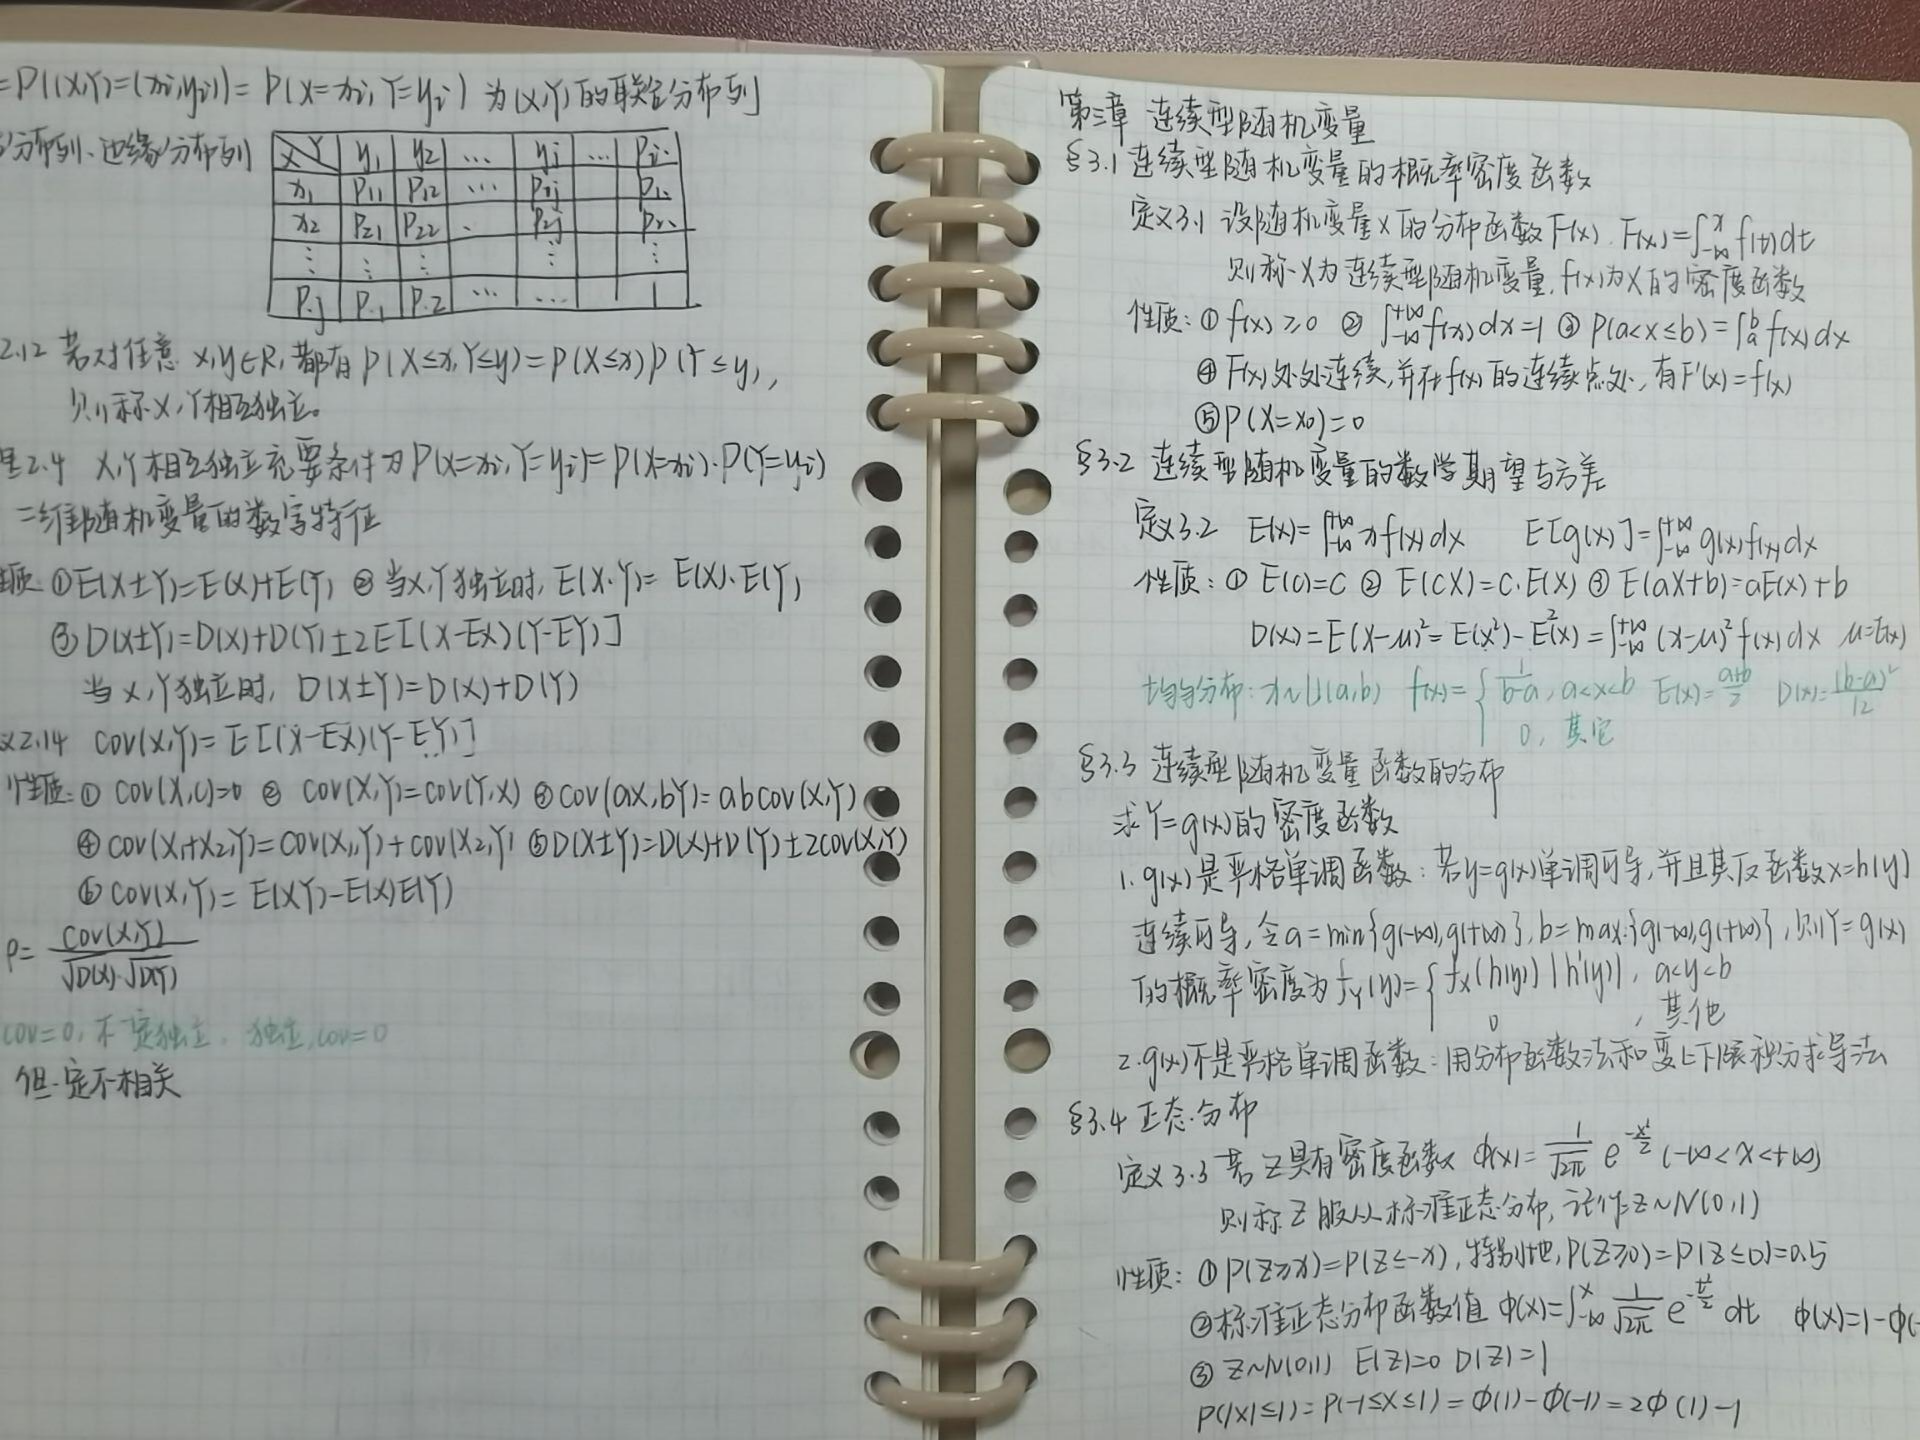 =P((X,Y)=(xi,yi))=P(X=xi,Y=yi) 为(X,Y)的联合分布列
分布列、边缘分布列
X Y y₁ y₂ … yj … Pi·
x₁ P₁₁ P₁₂ … P₁j P₁·
x₂ P₂₁ P₂₂ · P₂j P₂·
⋮ ⋮ ⋮ ⋮ ⋮
P·j P·₁ P·₂ … … 1
2.12 若对任意 x,y∈R,都有P(X≤x,Y≤y)=P(X≤x)P(Y≤y),
则称X,Y相互独立。
2.4 X,Y相互独立充要条件为P(X=xi,Y=yi)=P(X=xi)·P(Y=yi)
二维随机变量的数字特征
性质:①E(X±Y)=E(X)+E(Y) ②当X,Y独立时,E(X·Y)=E(X)·E(Y)
③D(X±Y)=D(X)+D(Y)±2E[(X-EX)(Y-EY)]
当X,Y独立时,D(X±Y)=D(X)+D(Y)
义2.14 cov(X,Y)=E[(X-EX)(Y-EY)]
性质:① cov(X,c)=0 ② cov(X,Y)=cov(Y,X) ③cov(aX,bY)=abcov(X,Y)
④cov(X₁+X₂,Y)=cov(X₁,Y)+cov(X₂,Y) ⑤D(X±Y)=D(X)+D(Y)±2cov(X,Y)
⑥cov(X,Y)=E(XY)-E(X)E(Y)
ρ= cov(X,Y) / √D(X)·√D(Y)
cov=0,不一定独立. 独立,cov=0
但一定不相关
第三章 连续型随机变量
§3.1 连续型随机变量的概率密度函数
定义3.1 设随机变量X的分布函数F(x), F(x)=∫₋∞ˣ f(t)dt
则称X为连续型随机变量,f(x)为X的密度函数
性质:①f(x)≥0 ②∫₋∞⁺∞ f(x)dx=1 ③P(a<x≤b)=∫ₐᵇ f(x)dx
④F(x)处处连续,并在f(x)的连续点处,有F'(x)=f(x)
⑤P(X=x₀)=0
§3.2 连续型随机变量的数学期望与方差
定义3.2 E(x)=∫₋∞⁺∞ xf(x)dx E[g(x)]=∫₋∞⁺∞ g(x)f(x)dx
性质:① E(c)=C ② E(CX)=C·E(X) ③ E(aX+b)=aE(x)+b
D(x)=E(X-μ)²=E(x²)-E²(x)=∫₋∞⁺∞ (x-μ)²f(x)dx μ=E(x)
均匀分布:x~U(a,b) f(x)={ 1/(b-a), a<x<b E(x)=(a+b)/2 D(x)=(b-a)²/12
0, 其它
§3.3 连续型随机变量函数的分布
求Y=g(x)的密度函数
1.g(x)是严格单调函数:若y=g(x)单调可导,并且其反函数x=h(y)
连续可导,令a=min{g(-∞),g(+∞)},b=max{g(-∞),g(+∞)},则Y=g(x)
的概率密度为fY(y)={ fX(h(y))|h'(y)|, a<y<b
0 ,其他
2.g(x)不是严格单调函数:用分布函数法和变上下限积分求导法
§3.4 正态分布
定义3.3 若Z具有密度函数 φ(x)=1/√2π e^(-x²/2) (-∞<x<+∞)
则称Z服从标准正态分布,记作Z~N(0,1)
性质:①P(Z≥x)=P(Z≤-x),特别地,P(Z≥0)=P(Z≤0)=0.5
②标准正态分布函数值 Φ(x)=∫₋∞ˣ 1/√2π e^(-t²/2) dt Φ(x)=1-Φ(-
③ Z~N(0,1) E(Z)=0 D(Z)=1
P(|X|≤1)=P(-1≤X≤1)=Φ(1)-Φ(-1)=2Φ(1)-1